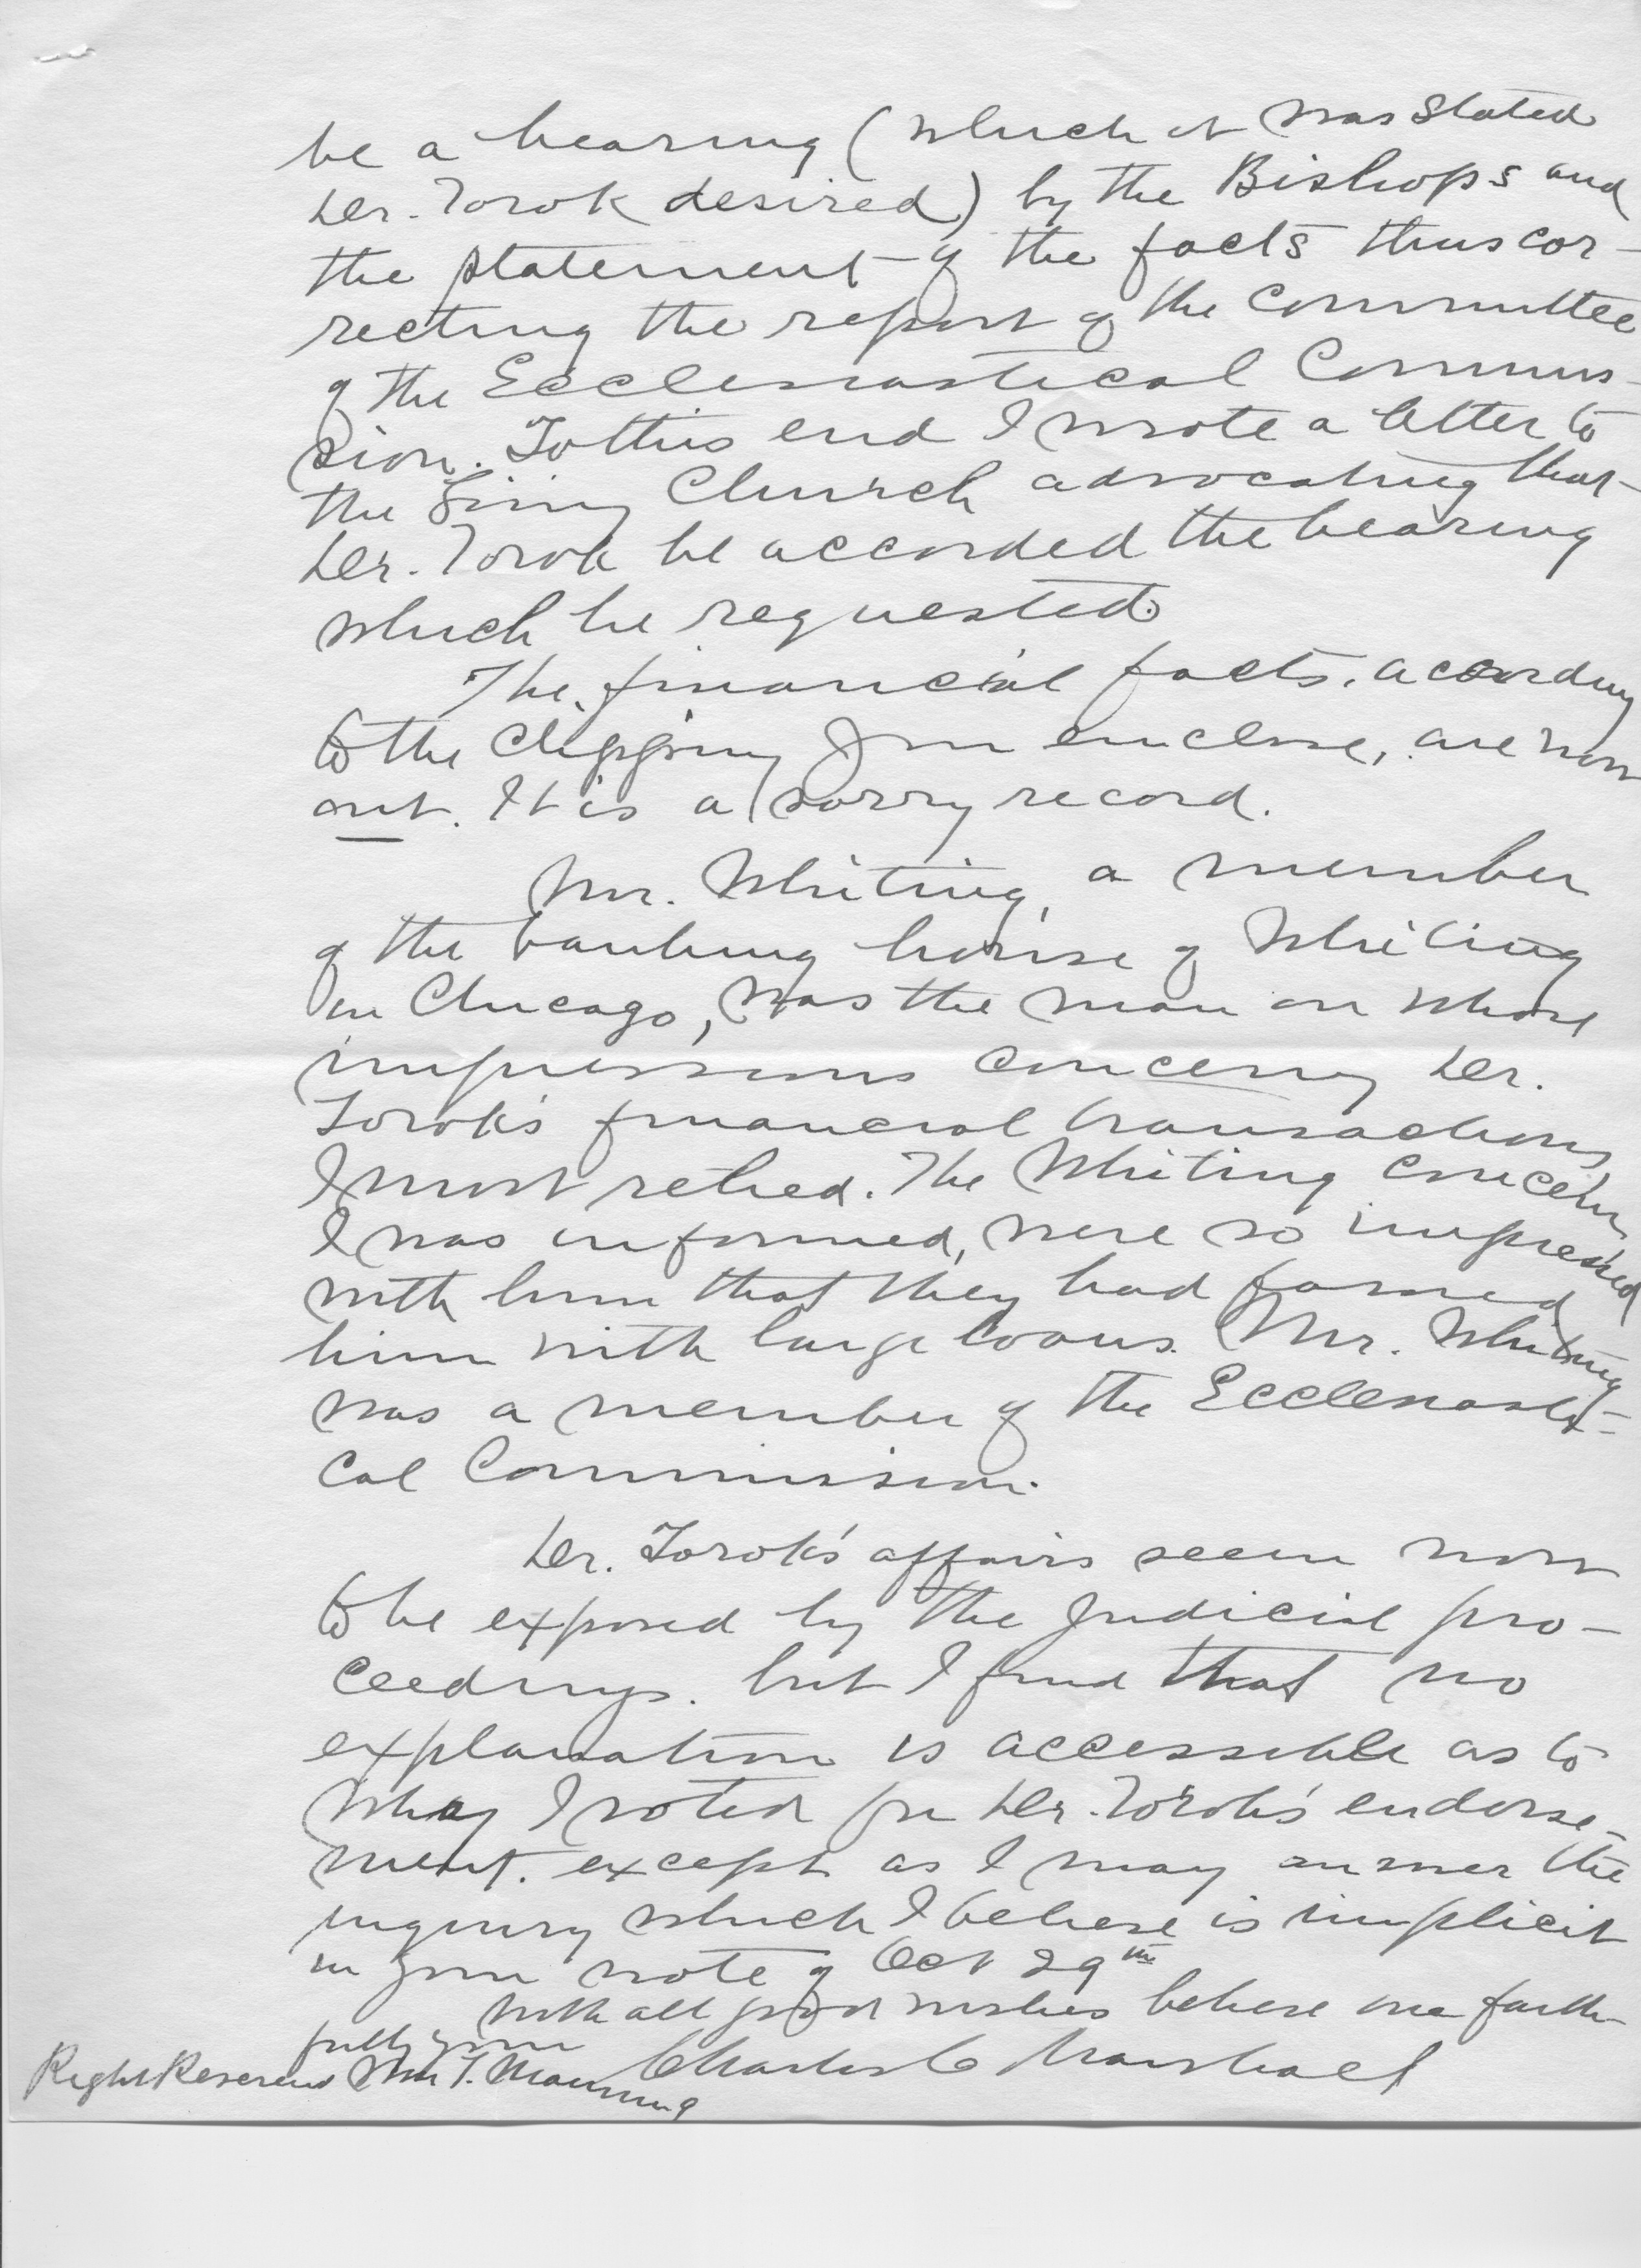 be a hearing (which it was stated
Dr. Torok desired) by the Bishops and
the statement of the facts thus cor-
recting the report of the Committee
of the Ecclesiastical Commis-
sion. To this end I wrote a letter to
the Living Church advocating that
Dr. Torok be accorded the hearing
which he requested.
The financial facts, according
to the clipping you enclose, are now
out. It is a sorry record.
Mr. Whiting, a member
of the banking house of Whiting
in Chicago, was the man on whose
impressions concerning Dr.
Torok's financial transactions
I most relied. The Whiting concern
I was informed, were so impressed
with him that they had
him with large loans. Mr. Whiting
was a member of the Ecclesiasti-
cal Commission.
Dr. Torok's affairs seem now
to be exposed by the judicial pro-
ceedings. but I find that no
explanation is accessible as to
why I voted for Dr. Torok's endorse-
ment. except as I may answer the
inquiry which I believe is implicit
in your note of Oct 29th
With all good wishes believe me faith-
fully yours
Charles C Marshall
Right Reverend Wm T. Manning